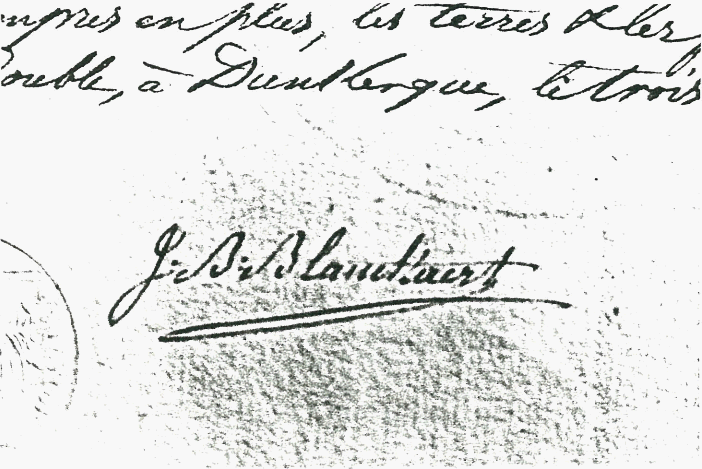 en plus, les terres
ouble, à Dunkerque, le trois
J. B. Blanckaert